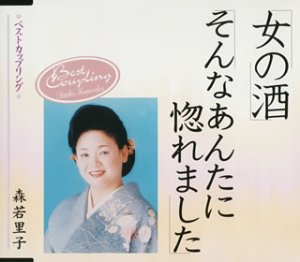 「女の酒」
「そんなあんたに
惚れました」
*ベストカップリング*
Best
Coupling
森若里子